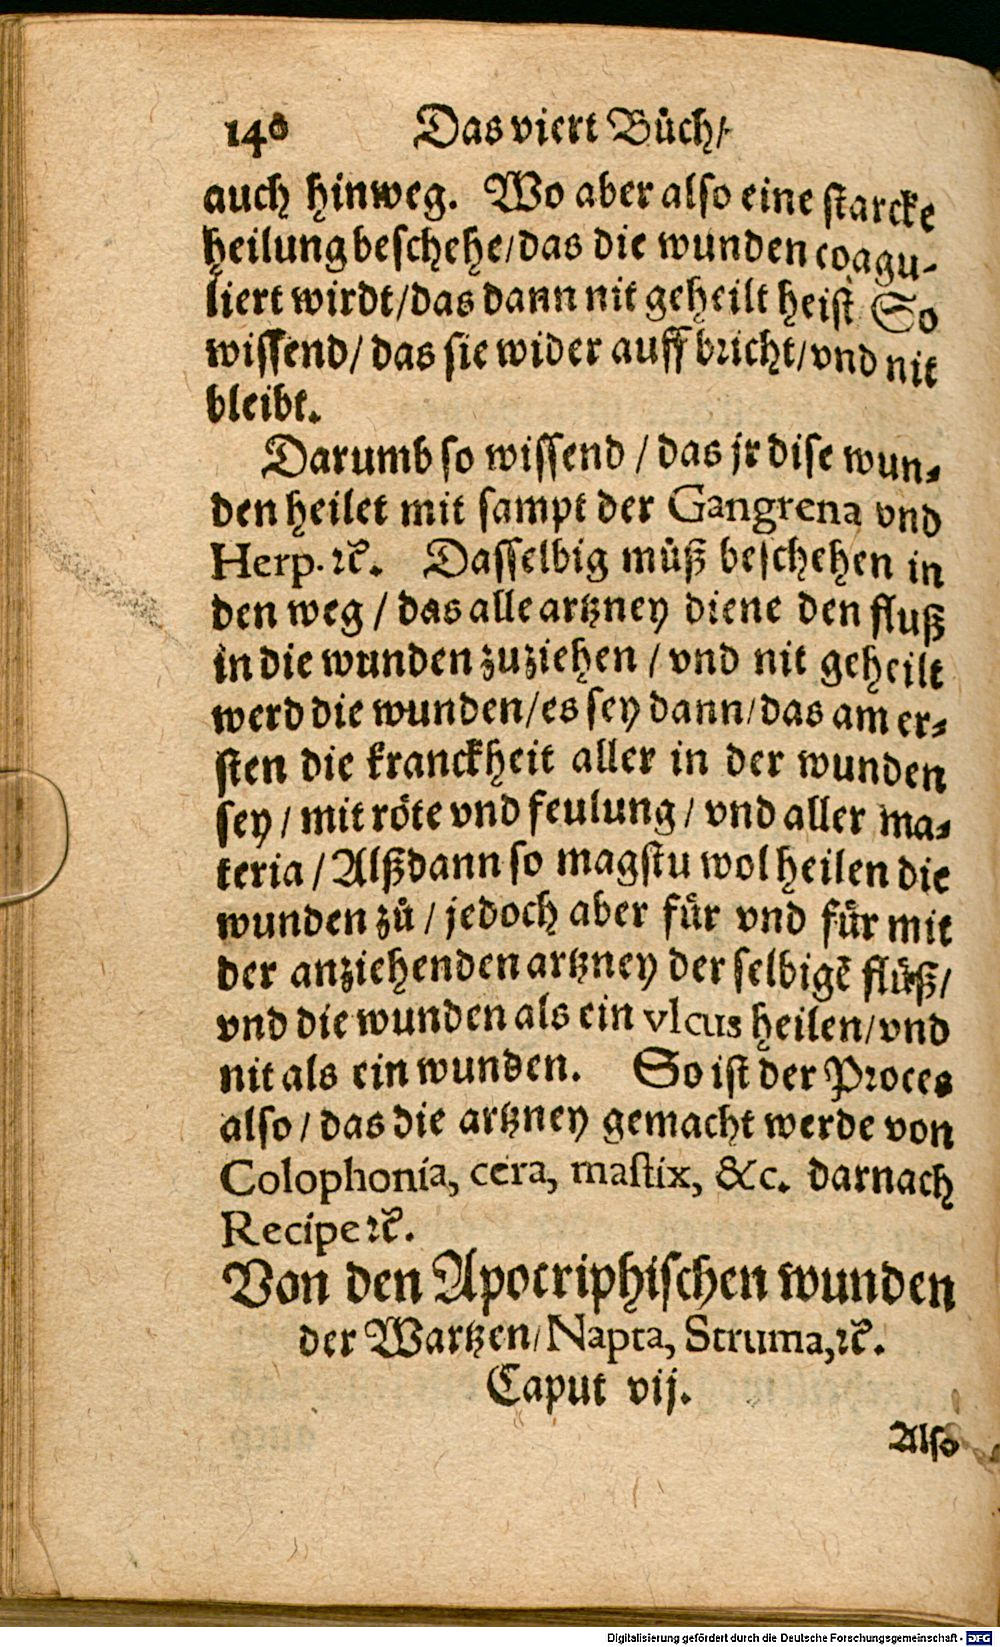 140 Das viert Bůch/
auch hinweg. Wo aber also eine starcke
heilung beschehe/das die wunden coagu-
liert wirdt/das dann nit geheilt heist So
wissend/ das sie wider auff bricht/vnd nit
bleibt.
Darumb so wissend / das jr dise wun-
den heilet mit sampt der Gangrena vnd
Herp. ꝛc̃. Dasselbig můß beschehen in
den weg / das alle artzney diene den fluß
in die wunden zuziehen / vnd nit geheilt
werd die wunden/es sey dann/das am er-
sten die kranckheit aller in der wunden
sey / mit röte vnd feulung / vnd aller ma-
teria / Alßdann so magstu wol heilen die
wunden zů / jedoch aber für vnd für mit
der anziehenden artzney der selbigẽ flüß/
vnd die wunden als ein vlcus heilen/vnd
nit als ein wunden. So ist der Proces
also / das die artzney gemacht werde von
Colophonia, cera, mastix, &c. darnach
Recipe ꝛc̃.
Von den Apocriphischen wunden
der Wartzen/ Napta, Struma,ꝛc̃.
Caput vij.
Also
Digitalisierung gefördert durch die Deutsche Forschungsgemeinschaft - DFG